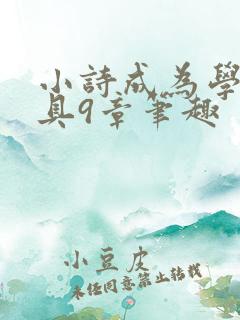 小詩成為學
具9章筆趣
小豆皮
未经同意禁止转载